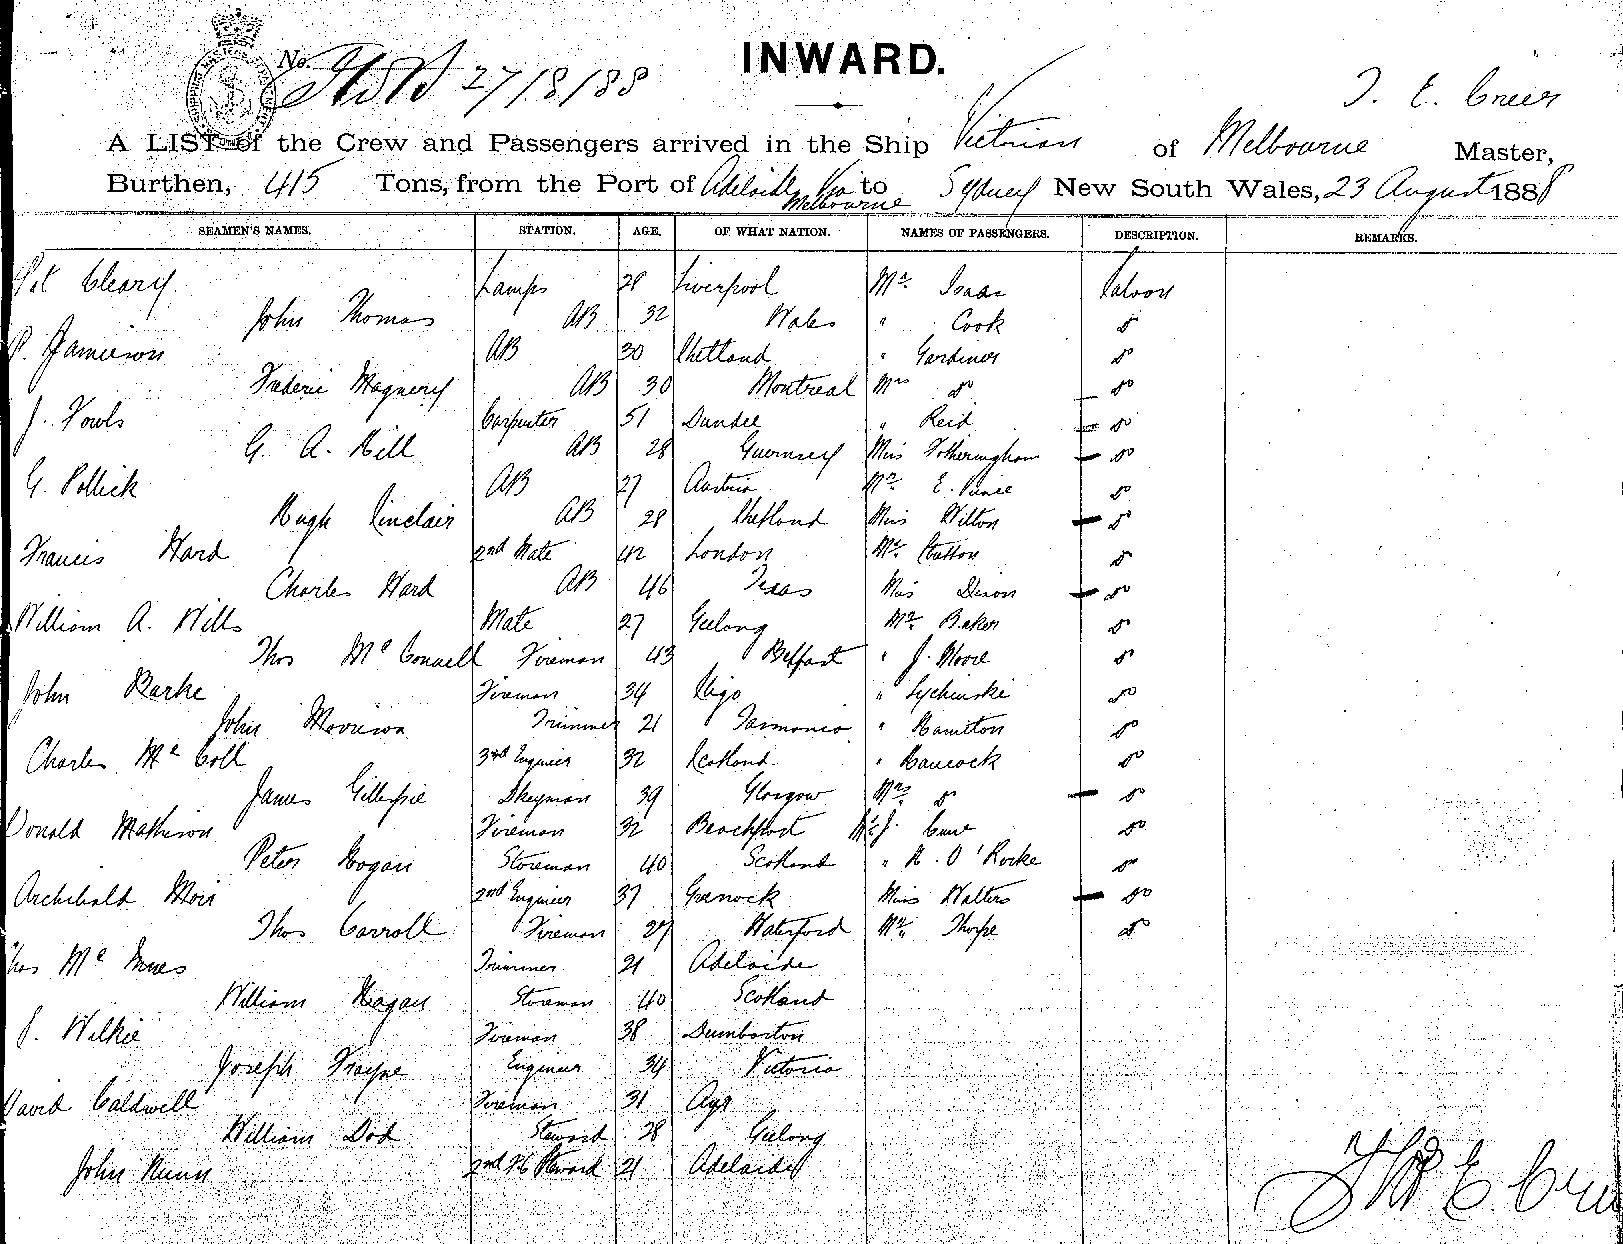 INWARD.
No. 27/8/88
T. E. Creer
A LIST of the Crew and Passengers arrived in the Ship Victorian of Melbourne Master,
Burthen, 415 Tons, from the Port of Adelaide Via Melbourne to Sydney New South Wales, 23 August 1888
SEAMEN'S NAMES. STATION. AGE. OF WHAT NATION. NAMES OF PASSENGERS. DESCRIPTION. REMARKS.
Pat Cleary Lamps 28 Liverpool Mr. Isaac Saloon
John Thomas AB 32 Wales " Cook do
P. Jamieson AB 30 Shetland " Gardiner do
Frederic Magnery AB 30 Montreal Mrs do do
J. Fowls Carpenter 51 Dundee " Reid do
G. A. Hill AB 28 Guernsey Miss Fotheringham do
G. Pollick AB 27 Austria Mr. E. do
Hugh Sinclair AB 28 Shetland Miss Wilton do
Francis Ward 2nd Mate 42 London Mr. Sutton do
Charles Ward AB 46 Texas Miss Dixon do
William A. Mills Mate 27 Geelong Mr. Baker do
Thos McConnell Fireman 43 Belfast " J. Moore do
John Burke Fireman 34 Sligo " Lychinski do
John Morrison Trimmer 21 Tasmania " Hamilton do
Charles McColl 3rd Engineer 32 Scotland " Hancock do
James Gillespie Dkeyman 39 Glasgow Mrs. do do
Donald Mathieson Fireman 32 Beachport Mr J. do
Peter Hogan Storeman 40 Scotland " H. O'Rorke do
Archibald Moir 2nd Engineer 37 Greenock Miss Walters do
Thos Carroll Fireman 27 Waterford Mr. Thorpe do
Thos McInnes Trimmer 21 Adelaide
William Hagan Storeman 40 Scotland
J. Wilkie Fireman 38 Dumbarton
Joseph Frayne Engineer 34 Victoria
David Caldwell Fireman 31 Ayr
William Dod Steward 28 Geelong
John Nunn 2nd Steward 21 Adelaide
Thos E. Creer